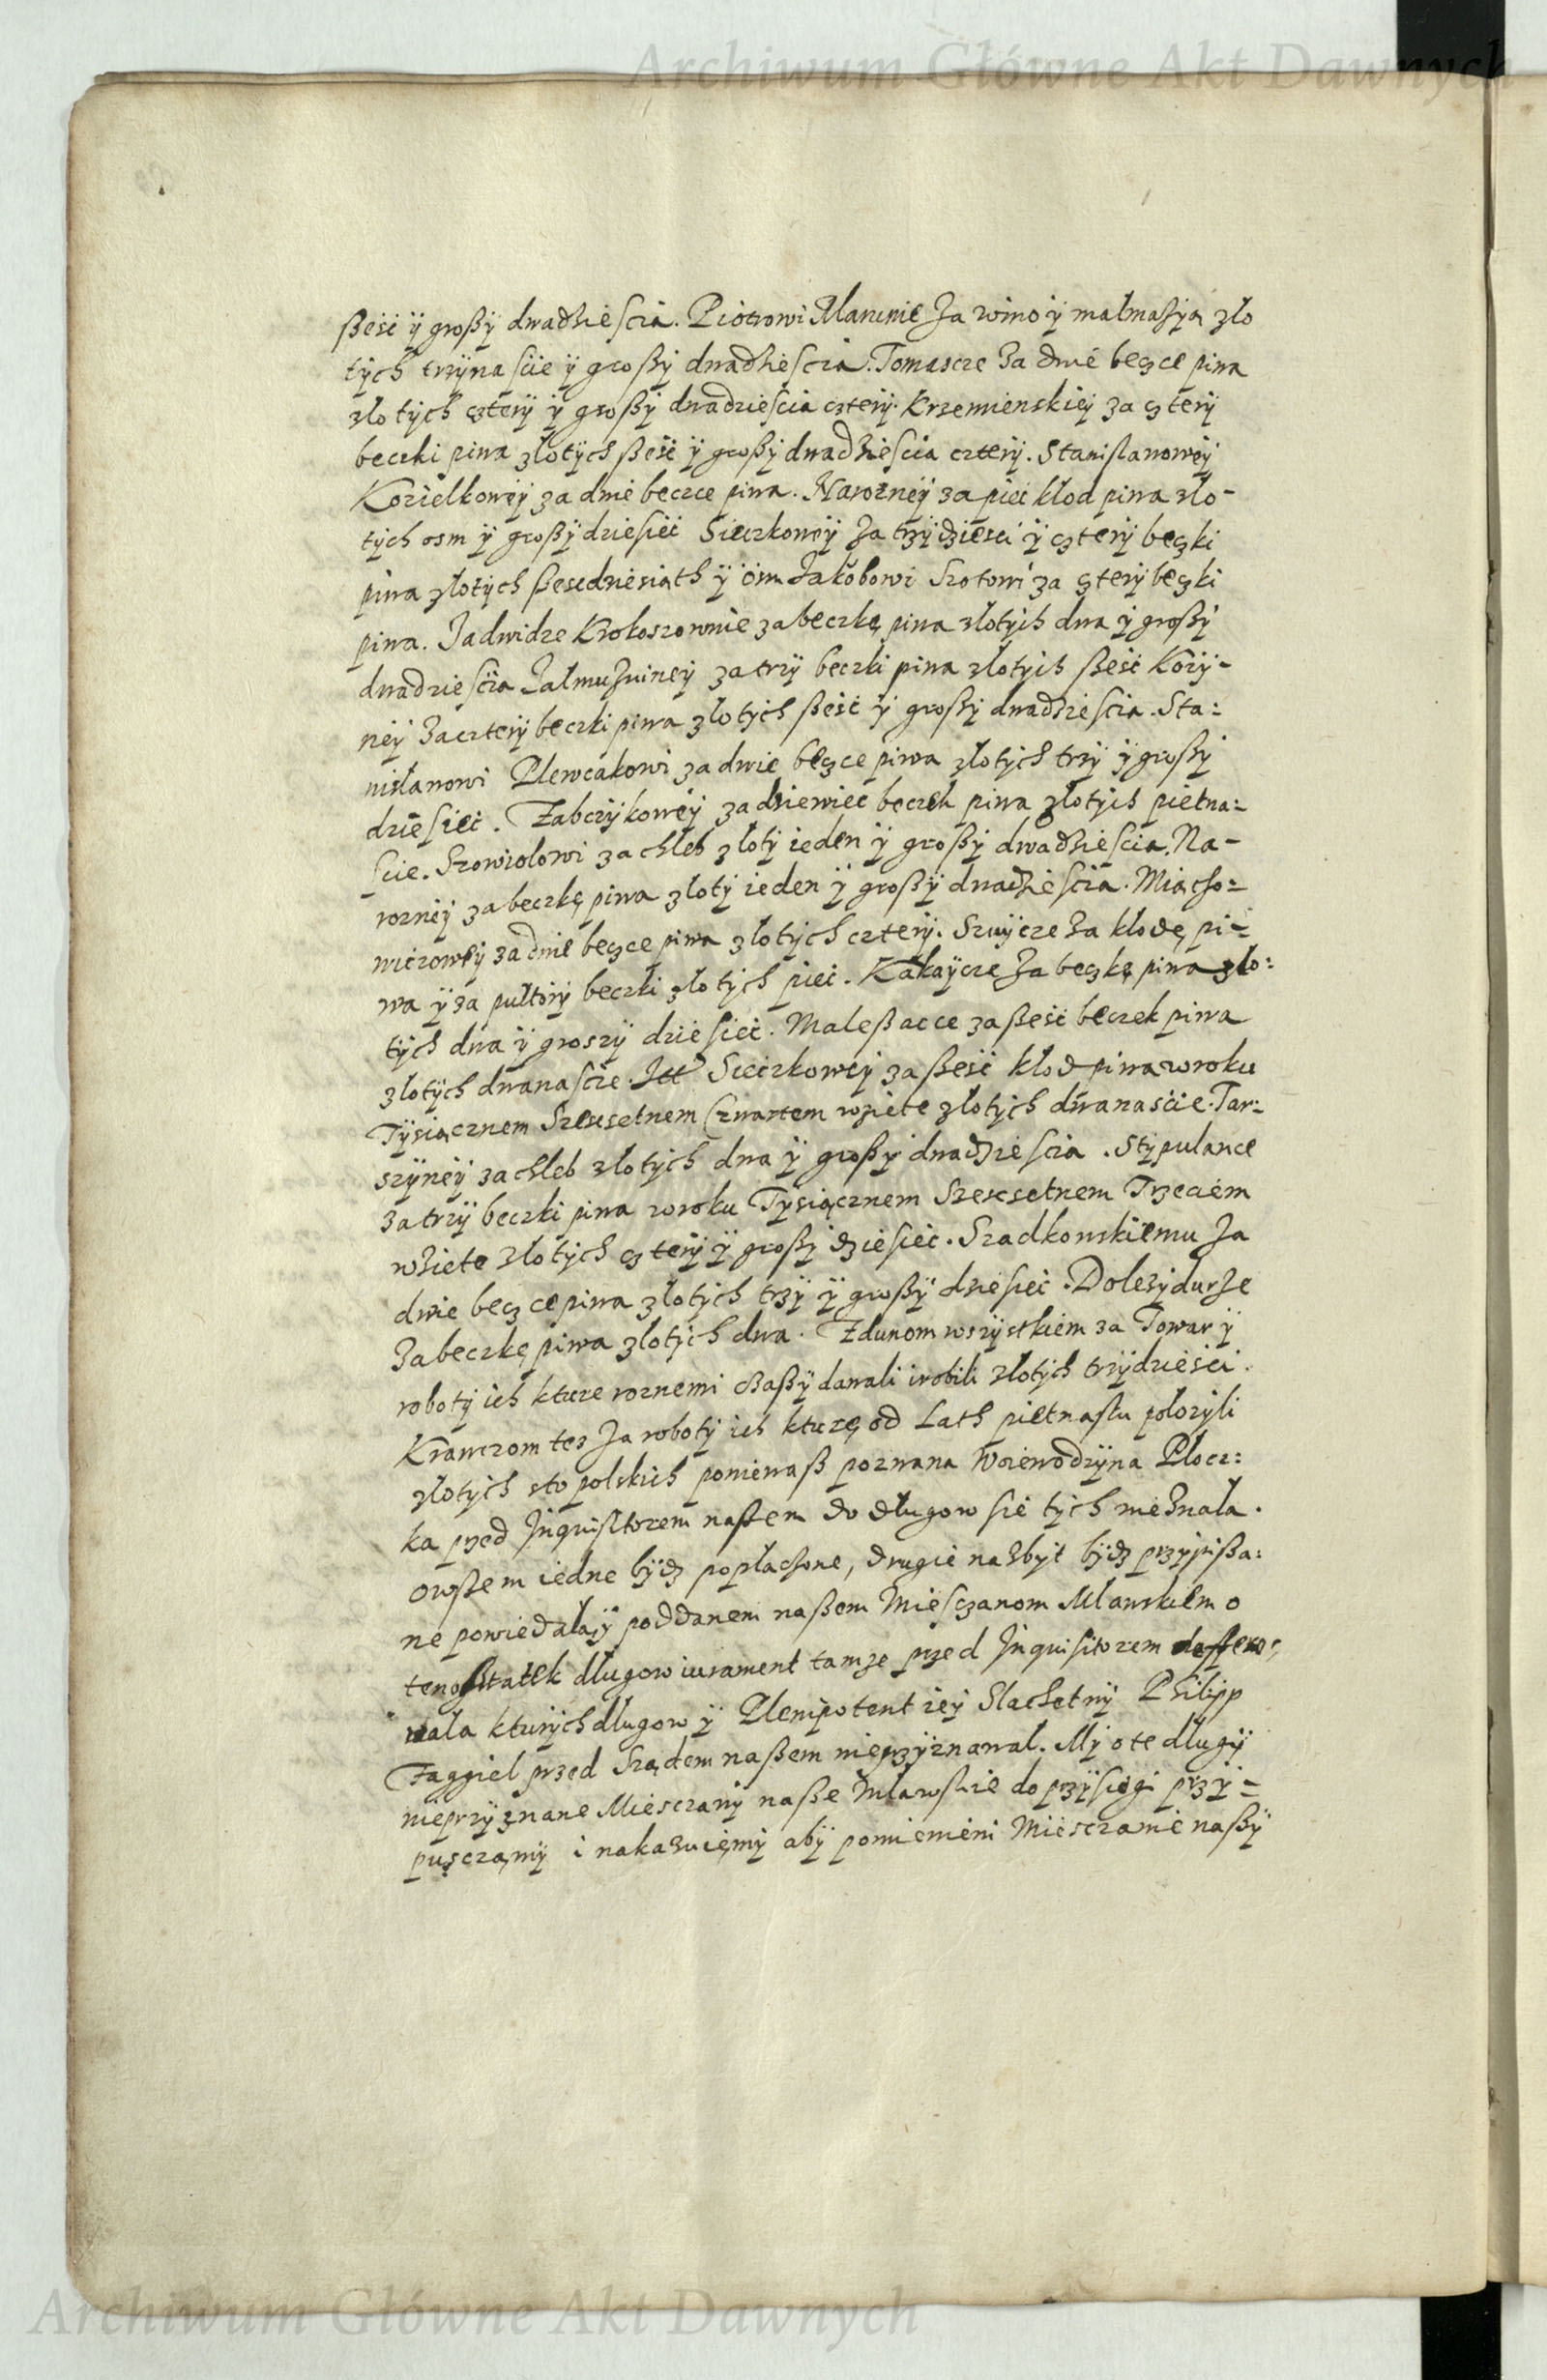 Archiwum Główne Akt Dawnych
ßesć ÿ großÿ dwadziescia. Piotrowi Marunie za wino ÿ malmasÿą zło
tÿch trzÿnascie ÿ großÿ dwadziescia. Tomascze za dwie beczce piwa
złotÿch czterÿ ÿ großÿ dwadziescia czterÿ. Krzemienskieÿ za czterÿ
beczki piwa złotÿch ßesć ÿ großÿ dwadziescia czterÿ. Stanisławoweÿ
Kozielkoweÿ za dwie beczce piwa. Narozneÿ za pieć kłod piwa zło-
tÿch osm ÿ großÿ dziesieć Sieczkoweÿ za trzÿdziesci ÿ czterÿ beczki
piwa złotÿch ßescdziesiąth ÿ osm Jakobowi Szotowi za czterÿ beczki
piwa. Jadwidze Krokoszownie za beczkę piwa złotÿch dwa ÿ großÿ
dwadziescia Jałmużniney za trzÿ beczki piwa złotÿch ßesć Kozÿ-
neÿ za czterÿ beczki piwa złotÿch ßesć ÿ großÿ dwadziescia. Sta:
nisławowi Plewcakowi za dwie beczce piwa złotÿch trzÿ ÿ großÿ
dziesieć. Zabczÿkoweÿ za dziewieć beczek piwa złotÿch pietna:
scie. Szowrołowi za chleb złotÿ ieden ÿ großÿ dwadziescia. Na-
rozneÿ za beczkę piwa złotÿ ieden ÿ großÿ dwadziescia. Miącho:
wiczoweÿ za dwie beczce piwa złotÿch czterÿ. Szwÿcze za kłodę pi-
wa ÿ za pułtorÿ beczki złotÿch pieć. Kakaÿcze za beczkę piwa zło:
tÿch dwa ÿ groszÿ dziesieć. Maleßacce za ßesć beczek piwa
złotÿch dwanascie. Itt Sieczkoweÿ za ßesć kłod piwa w roku
Tÿsiącznem Szescsetnem Czwartem wziete złotÿch dwanascie. Tar:
szÿneÿ za chleb złotÿch dwa ÿ großÿ dwadziescia. Stÿpulance
za trzÿ beczki piwa w roku Tÿsiącznem Szescsetnem Trzeciem
wziete złotÿch czterÿ ÿ großÿ dziesieć. Szadkowskiemu za
dwie beczce piwa złotÿch trzÿ ÿ großÿ dziesieć. Dolezÿdurze
za beczkę piwa złotÿch dwa. Zdunom wszÿstkiem za Towar ÿ
robotÿ ich kture roznemi czaßÿ dawali i robili złotÿch trzÿdziesci.
Krawczom tes za robotÿ ich kturę od Lath pietnastu połozÿli
złotÿch sto polskich poniewaß pozwana Woiewodzÿna Płocz:
ka przed Inquisitorem naßem do długow sie tÿch nie znała.
owßem iedne bÿdz popłachone, drugie nazbÿt bÿdz przypißa:
ne powiedałaÿ poddanem naßem Miesczanom Mławskiem o
ten ostatek długow iurament tamze przed Inquisitorem deffero:
wała kturÿch długow ÿ Plenipotent ieÿ Slachetnÿ Philipp
Faggiel przed Sządem naßem nieprzÿznawał. Mÿ o te długÿ
nieprzÿznane Miesczanÿ naße Mławskie do przÿsiegi przÿ-
puscząmÿ i nakazuięmÿ abÿ pomienieni Miesczanie naßÿ
Archiwum Główne Akt Dawnych